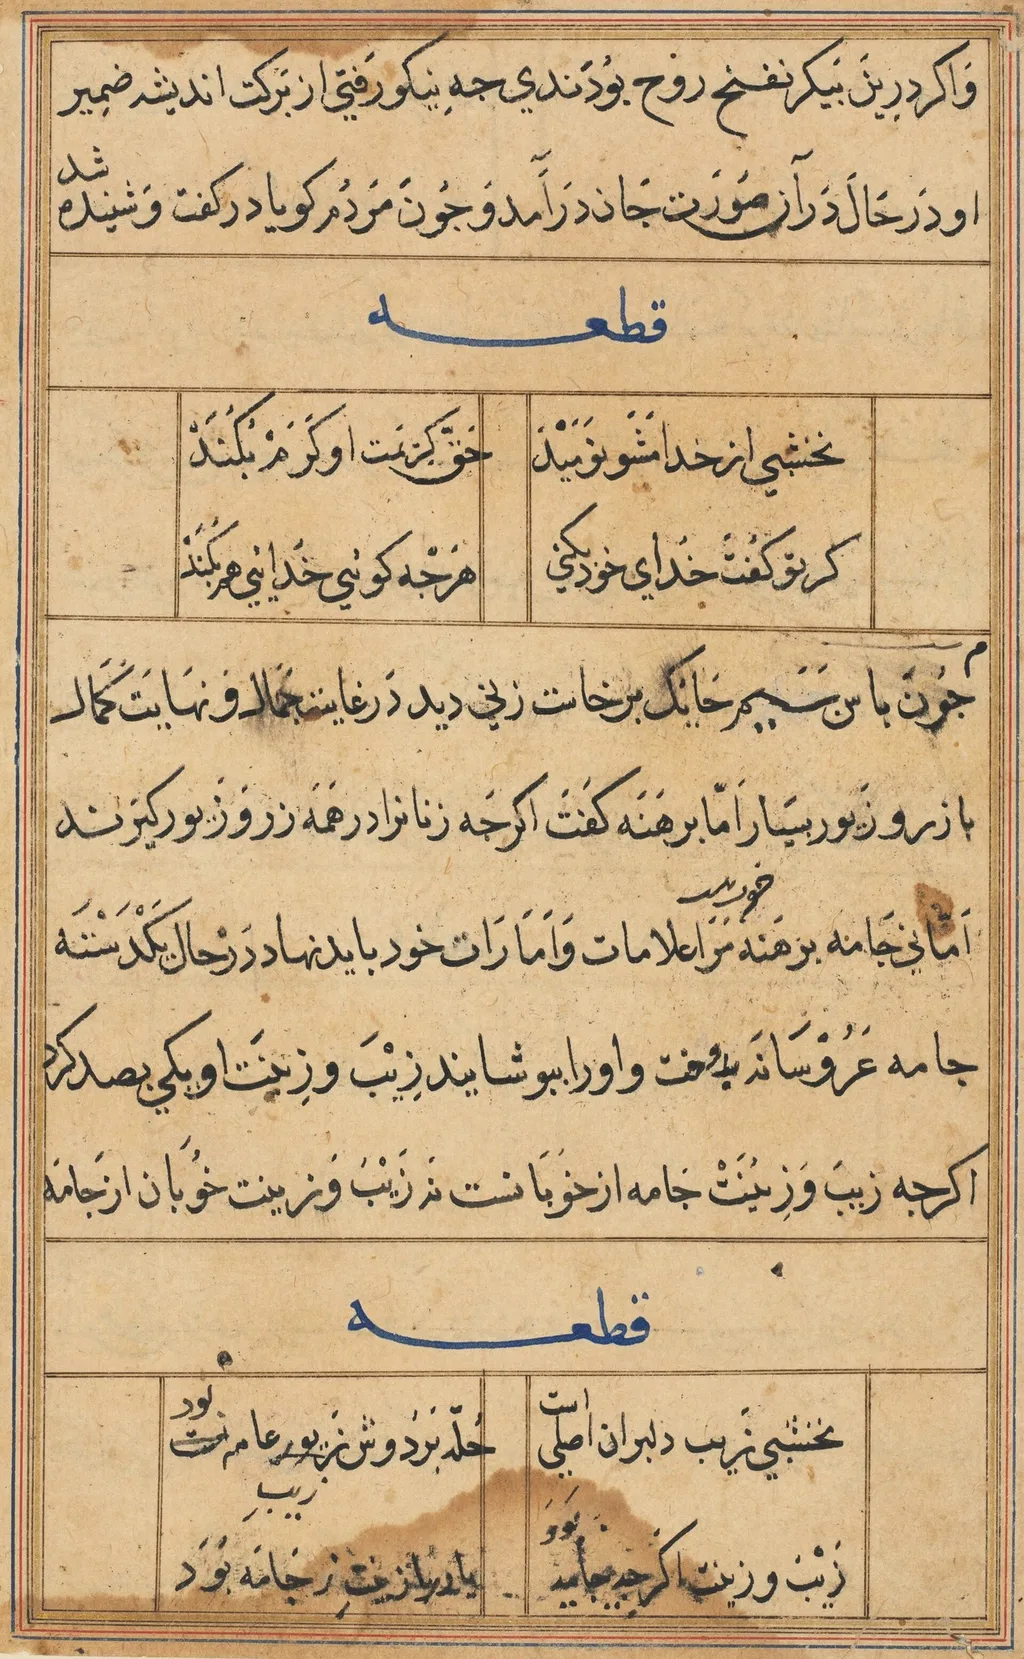 واکر درین بیکر نفخ روح بودندی جه نیکو رفتی از برکت اندیشه ضمیر
او در حال در آن صورت جان درآمد و جون مردم کویا در کفت و شنیده شد
قطعه
نخشبی از خدا مشو نومید
حق کزیمت او کرم بکند
کر تو کفت خدای خود بکنی
هرجه کوئی خدایی هم بکند
جون باس سیم حایک برخاست زنی دید در غایت جمال و نهایت کمال
با زر و زیور بسیار اما برهنه کفت اکرجه زنانرا در همه زر و زیور کیرند
اما نی جامه برهنه مرا علامات و امارات خود باید نهاد در حال یکدسته
جامه عروسانه بدوخت و اورا بپوشانید زیب و زینت او یکی بصد کرد
اکرجه زیب و زینت جامه از خوبانست نه زیب و زینت خوبان از جامه
قطعه
نخشبی زیب دلبران اصلی است
حله بر دوش زیور عام بود
زیب
زیب و زینت اکرجه جامه بود
یار را زینت ز جامه بود